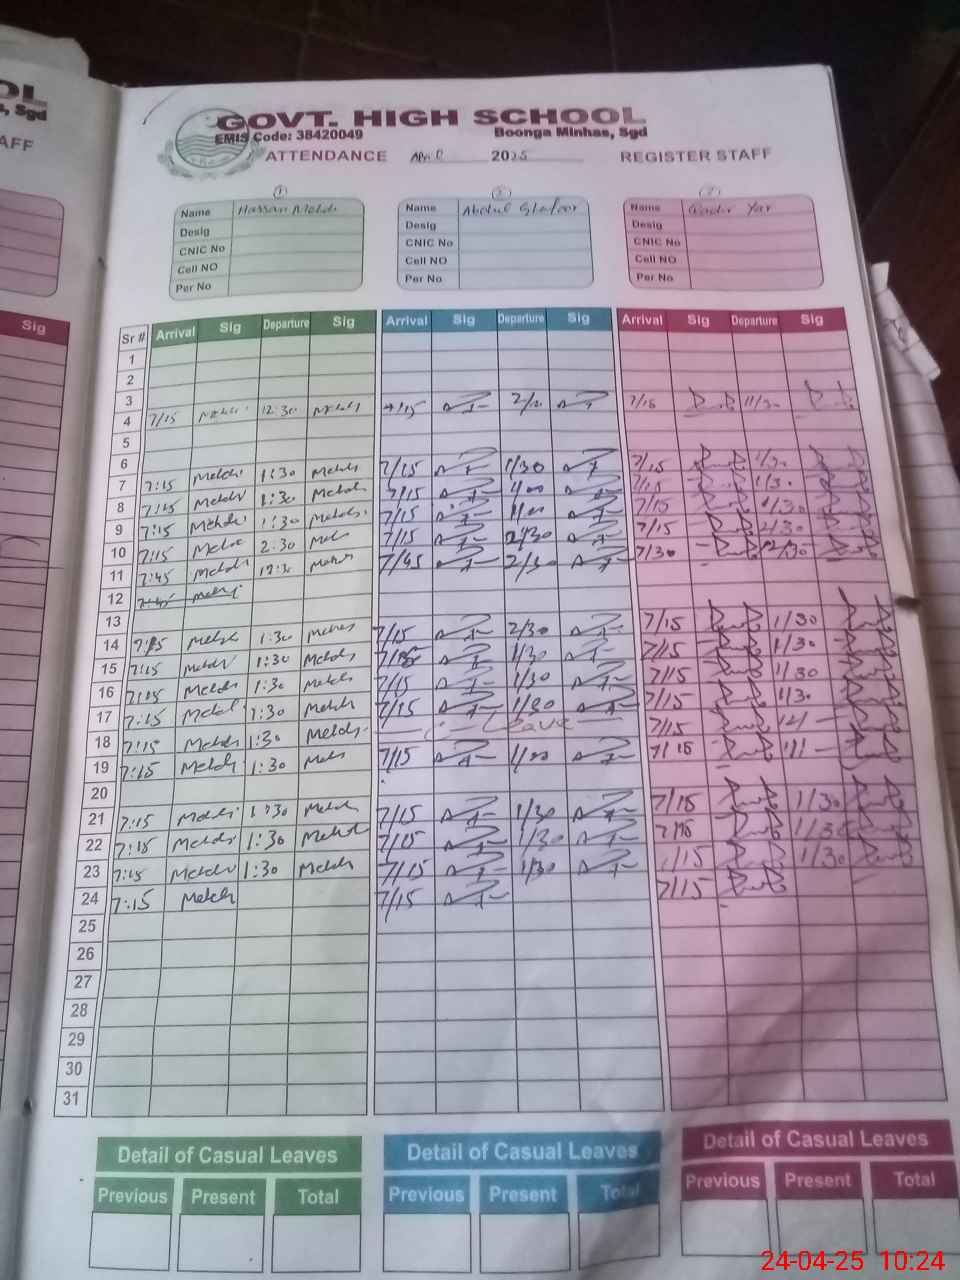 OL
, Sgd
AFF
Sig
GOVT. HIGH SCHOOL
EMIS Code: 38420049 Boonga Minhas, Sgd
ATTENDANCE April 2025 REGISTER STAFF
1 2 3
Name Hassan Mehdi Name Abdul Ghafoor Name Qadir Yar
Desig Desig Desig
CNIC No CNIC No CNIC No
Cell NO Cell NO Cell NO
Per No Per No Per No
Sr # Arrival Sig Departure Sig Arrival Sig Departure Sig Arrival Sig Departure Sig
1
2
3
4 7/15 Mehdi 12:30 Mehdi 7/15 7/15 11/30
5
6
7 7:15 Mehdi 1:30 Mehdi 7/15 1/30 7/15 1/30
8 7:15 Mehdi 1:30 Mehdi 7/15 1/00 7/15 1/30
9 7:15 Mehdi 1:30 Mehdi 7/15 1/00 7/15 1/30
10 7:15 Mehdi 2:30 Meh 7/15 2/30 7/15 2/30
11 7:45 Mehdi 12:30 Mehdi 7/45 2/30 7/30 12/30
12 7:45 Mehdi
13
14 7:15 Mehdi 1:30 Mehdi 7/15 2/30 7/15 1/30
15 7:15 Mehdi 1:30 Mehdi 7/15 1/30 7/15 1/30
16 7:15 Mehdi 1:30 Mehdi 7/15 1/30 7/15 1/30
17 7:15 Mehdi 1:30 Mehdi 7/15 1/30 7/15 1/30
18 7:15 Mehdi 1:30 Mehdi Leave 7/15
19 7:15 Mehdi 1:30 Meh 7/15 1/00 7/15
20
21 7:15 Mehdi 1:30 Mehdi 7/15 1/30 7/15 1/30
22 7:15 Mehdi 1:30 Mehdi 7/15 1/30 7/15 1/30
23 7:15 Mehdi 1:30 Mehdi 7/15 1/30 7/15 1/30
24 7:15 Mehdi 7/15 7/15
25
26
27
28
29
30
31
Detail of Casual Leaves Detail of Casual Leaves Detail of Casual Leaves
Previous Present Total Previous Present Total Previous Present Total
24-04-25 10:24